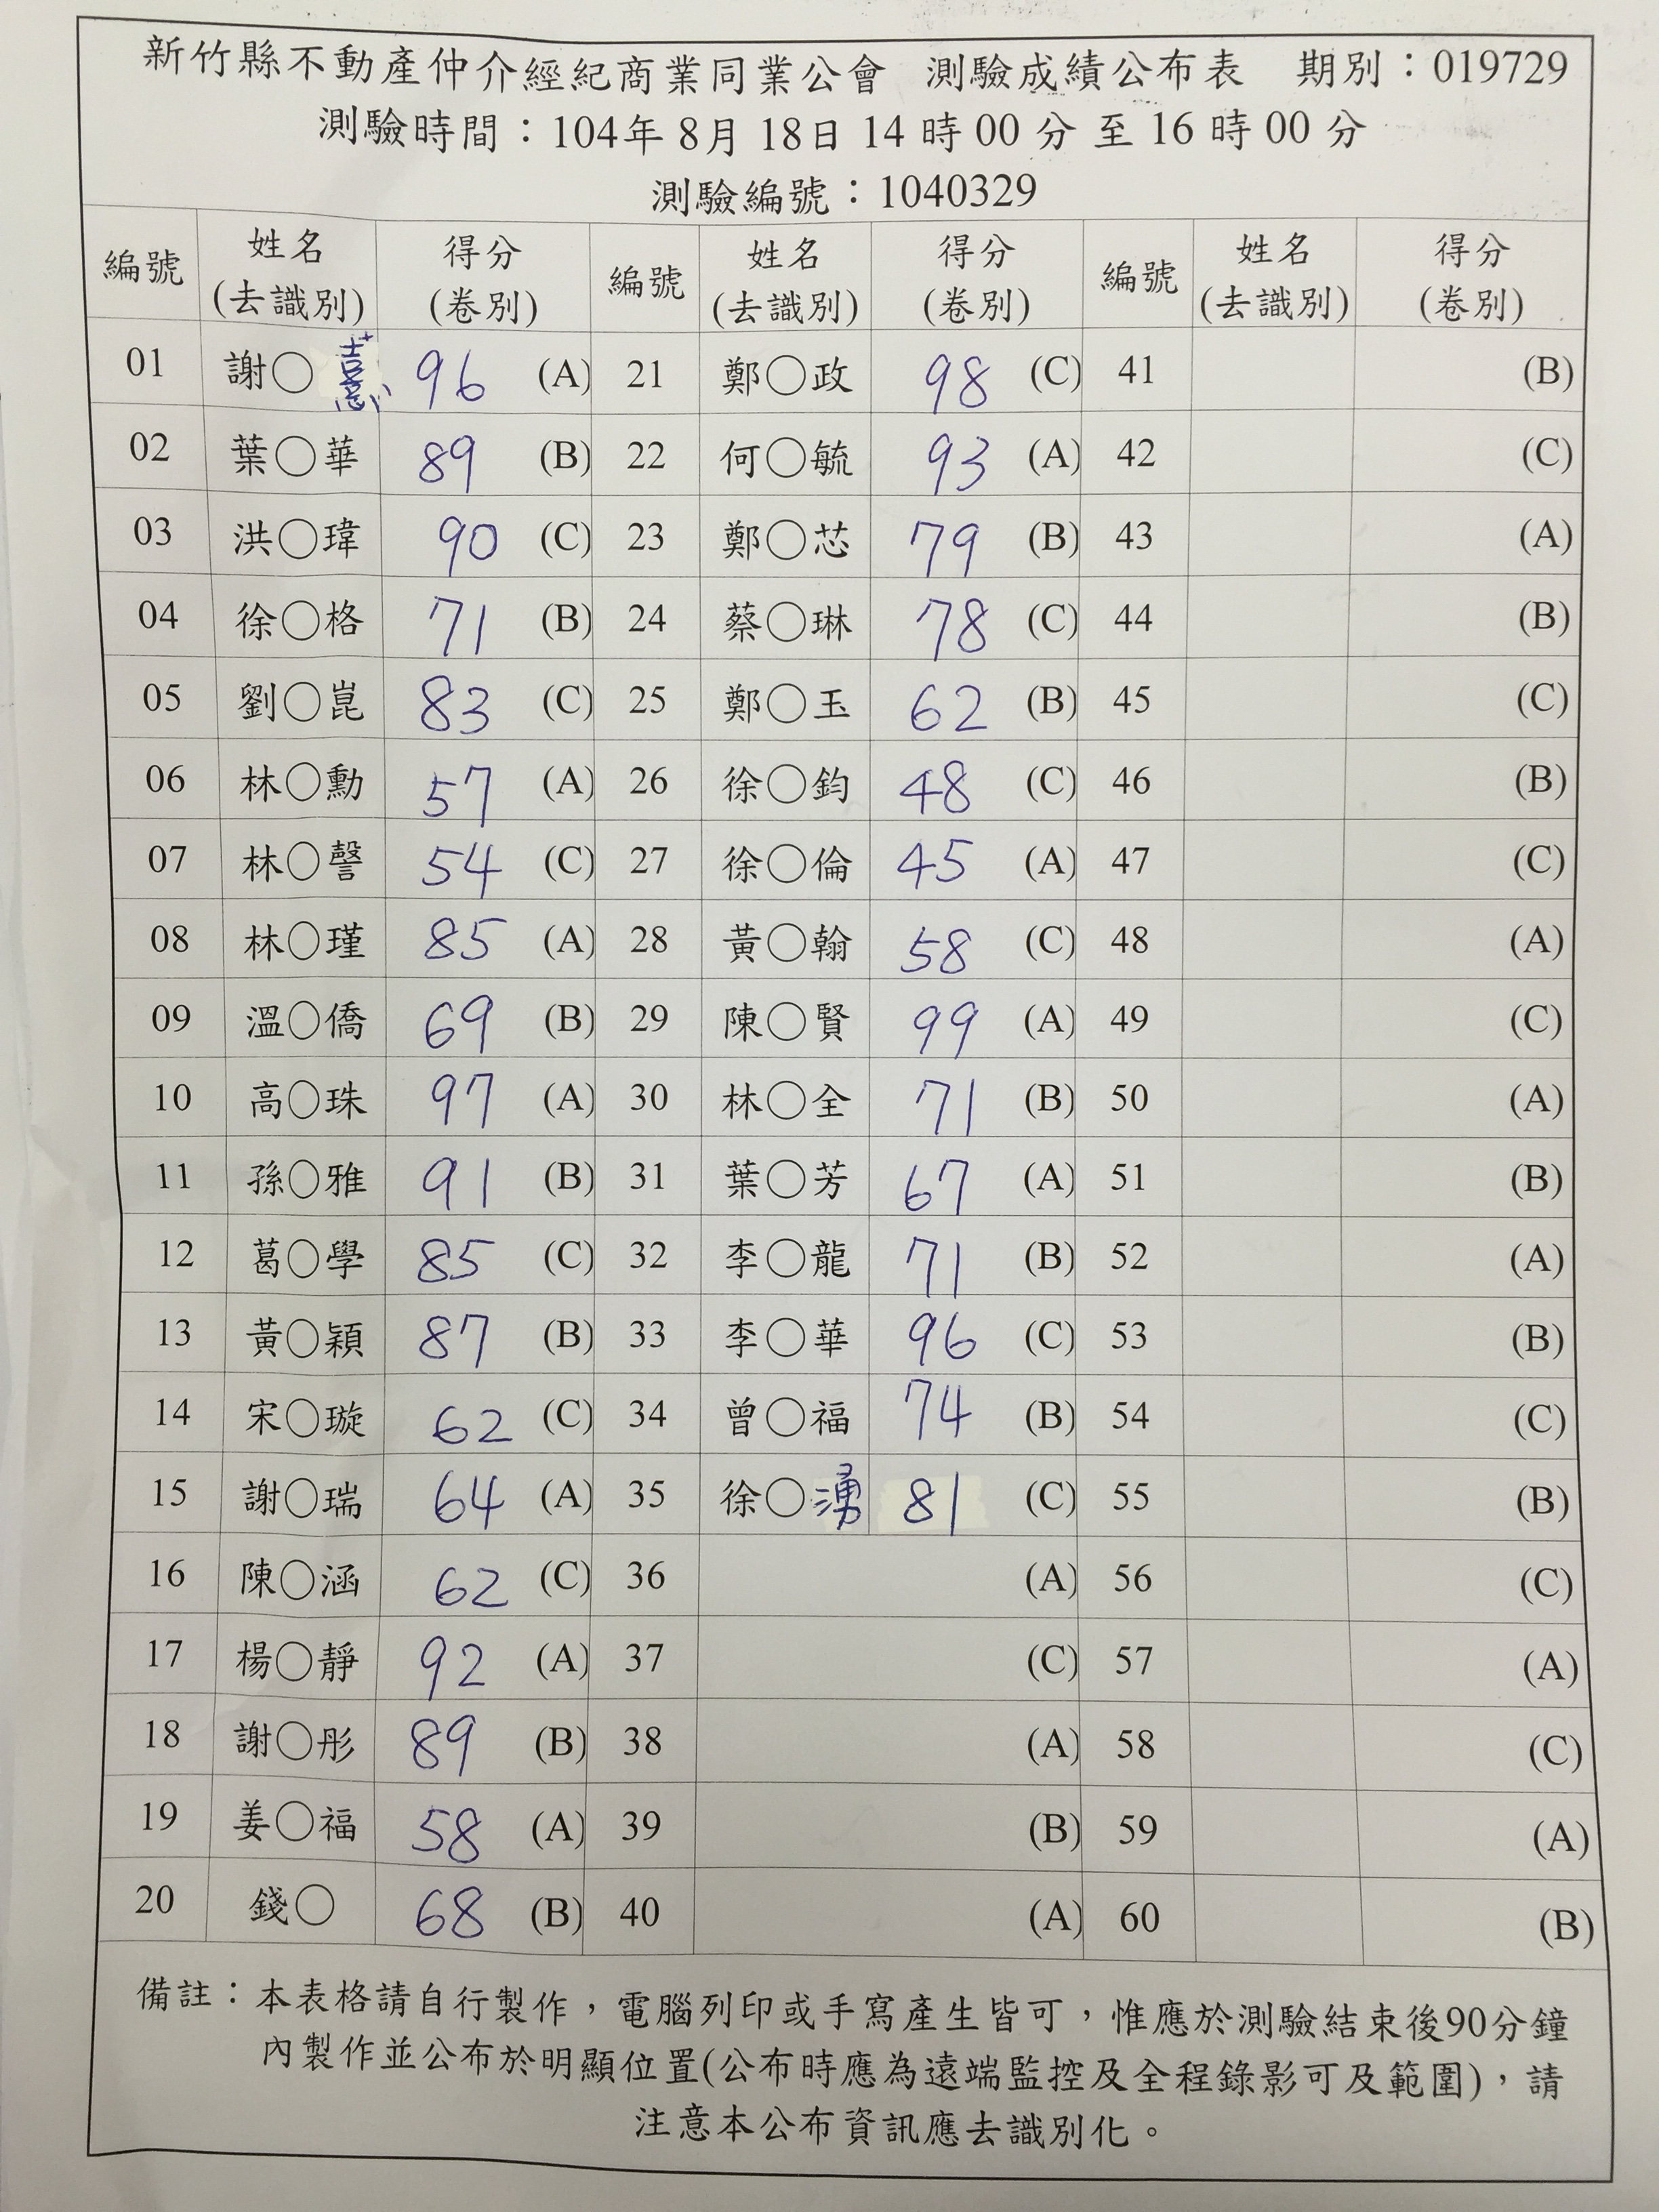 新竹縣不動產仲介經紀商業同業公會 測驗成績公布表 期別：019729
測驗時間：104年 8月 18日 14 時 00 分 至 16 時 00 分
測驗編號：1040329
編號 姓名 (去識別) 得分 (卷別) 編號 姓名 (去識別) 得分 (卷別) 編號 姓名 (去識別) 得分 (卷別)
01 謝○憙 96 (A) 21 鄭○政 98 (C) 41 (B)
02 葉○華 89 (B) 22 何○毓 93 (A) 42 (C)
03 洪○瑋 90 (C) 23 鄭○芯 79 (B) 43 (A)
04 徐○格 71 (B) 24 蔡○琳 78 (C) 44 (B)
05 劉○崑 83 (C) 25 鄭○玉 62 (B) 45 (C)
06 林○勳 57 (A) 26 徐○鈞 48 (C) 46 (B)
07 林○謦 54 (C) 27 徐○倫 45 (A) 47 (C)
08 林○瑾 85 (A) 28 黃○翰 58 (C) 48 (A)
09 溫○僑 69 (B) 29 陳○賢 99 (A) 49 (C)
10 高○珠 97 (A) 30 林○全 71 (B) 50 (A)
11 孫○雅 91 (B) 31 葉○芳 67 (A) 51 (B)
12 葛○學 85 (C) 32 李○龍 71 (B) 52 (A)
13 黃○穎 87 (B) 33 李○華 96 (C) 53 (B)
14 宋○璇 62 (C) 34 曾○福 74 (B) 54 (C)
15 謝○瑞 64 (A) 35 徐○湧 81 (C) 55 (B)
16 陳○涵 62 (C) 36 (A) 56 (C)
17 楊○靜 92 (A) 37 (C) 57 (A)
18 謝○彤 89 (B) 38 (A) 58 (C)
19 姜○福 58 (A) 39 (B) 59 (A)
20 錢○ 68 (B) 40 (A) 60 (B)
備註：本表格請自行製作，電腦列印或手寫產生皆可，惟應於測驗結束後90分鐘
內製作並公布於明顯位置(公布時應為遠端監控及全程錄影可及範圍)，請
注意本公布資訊應去識別化。